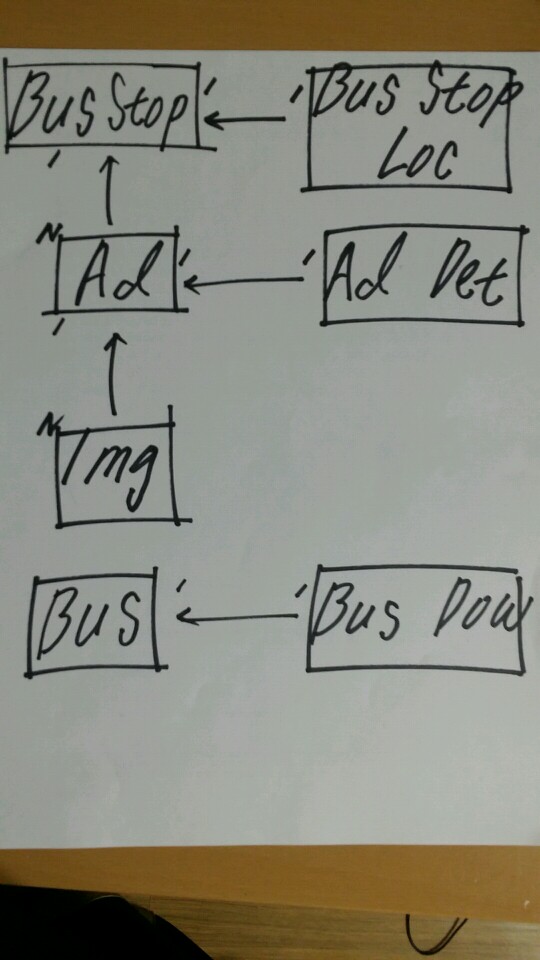 Bus Stop
1
1
Bus Stop
Loc
1
N
Ad
1
1
Ad Det
1
N
Img
Bus
1
1
Bus Dow